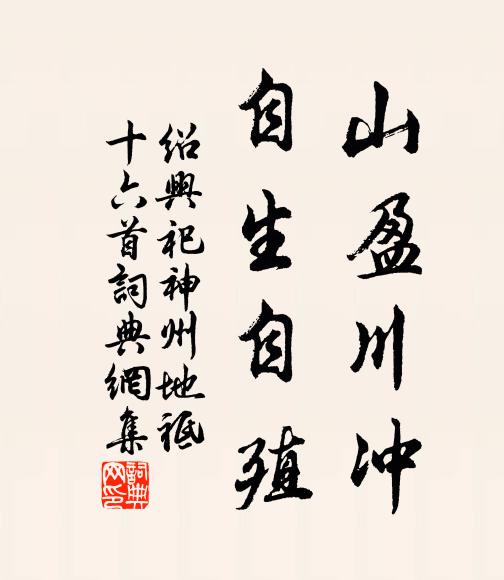 山盈川冲
自生自殖
绍興祀神州地祇
十六首詞典網集
詞典
网印